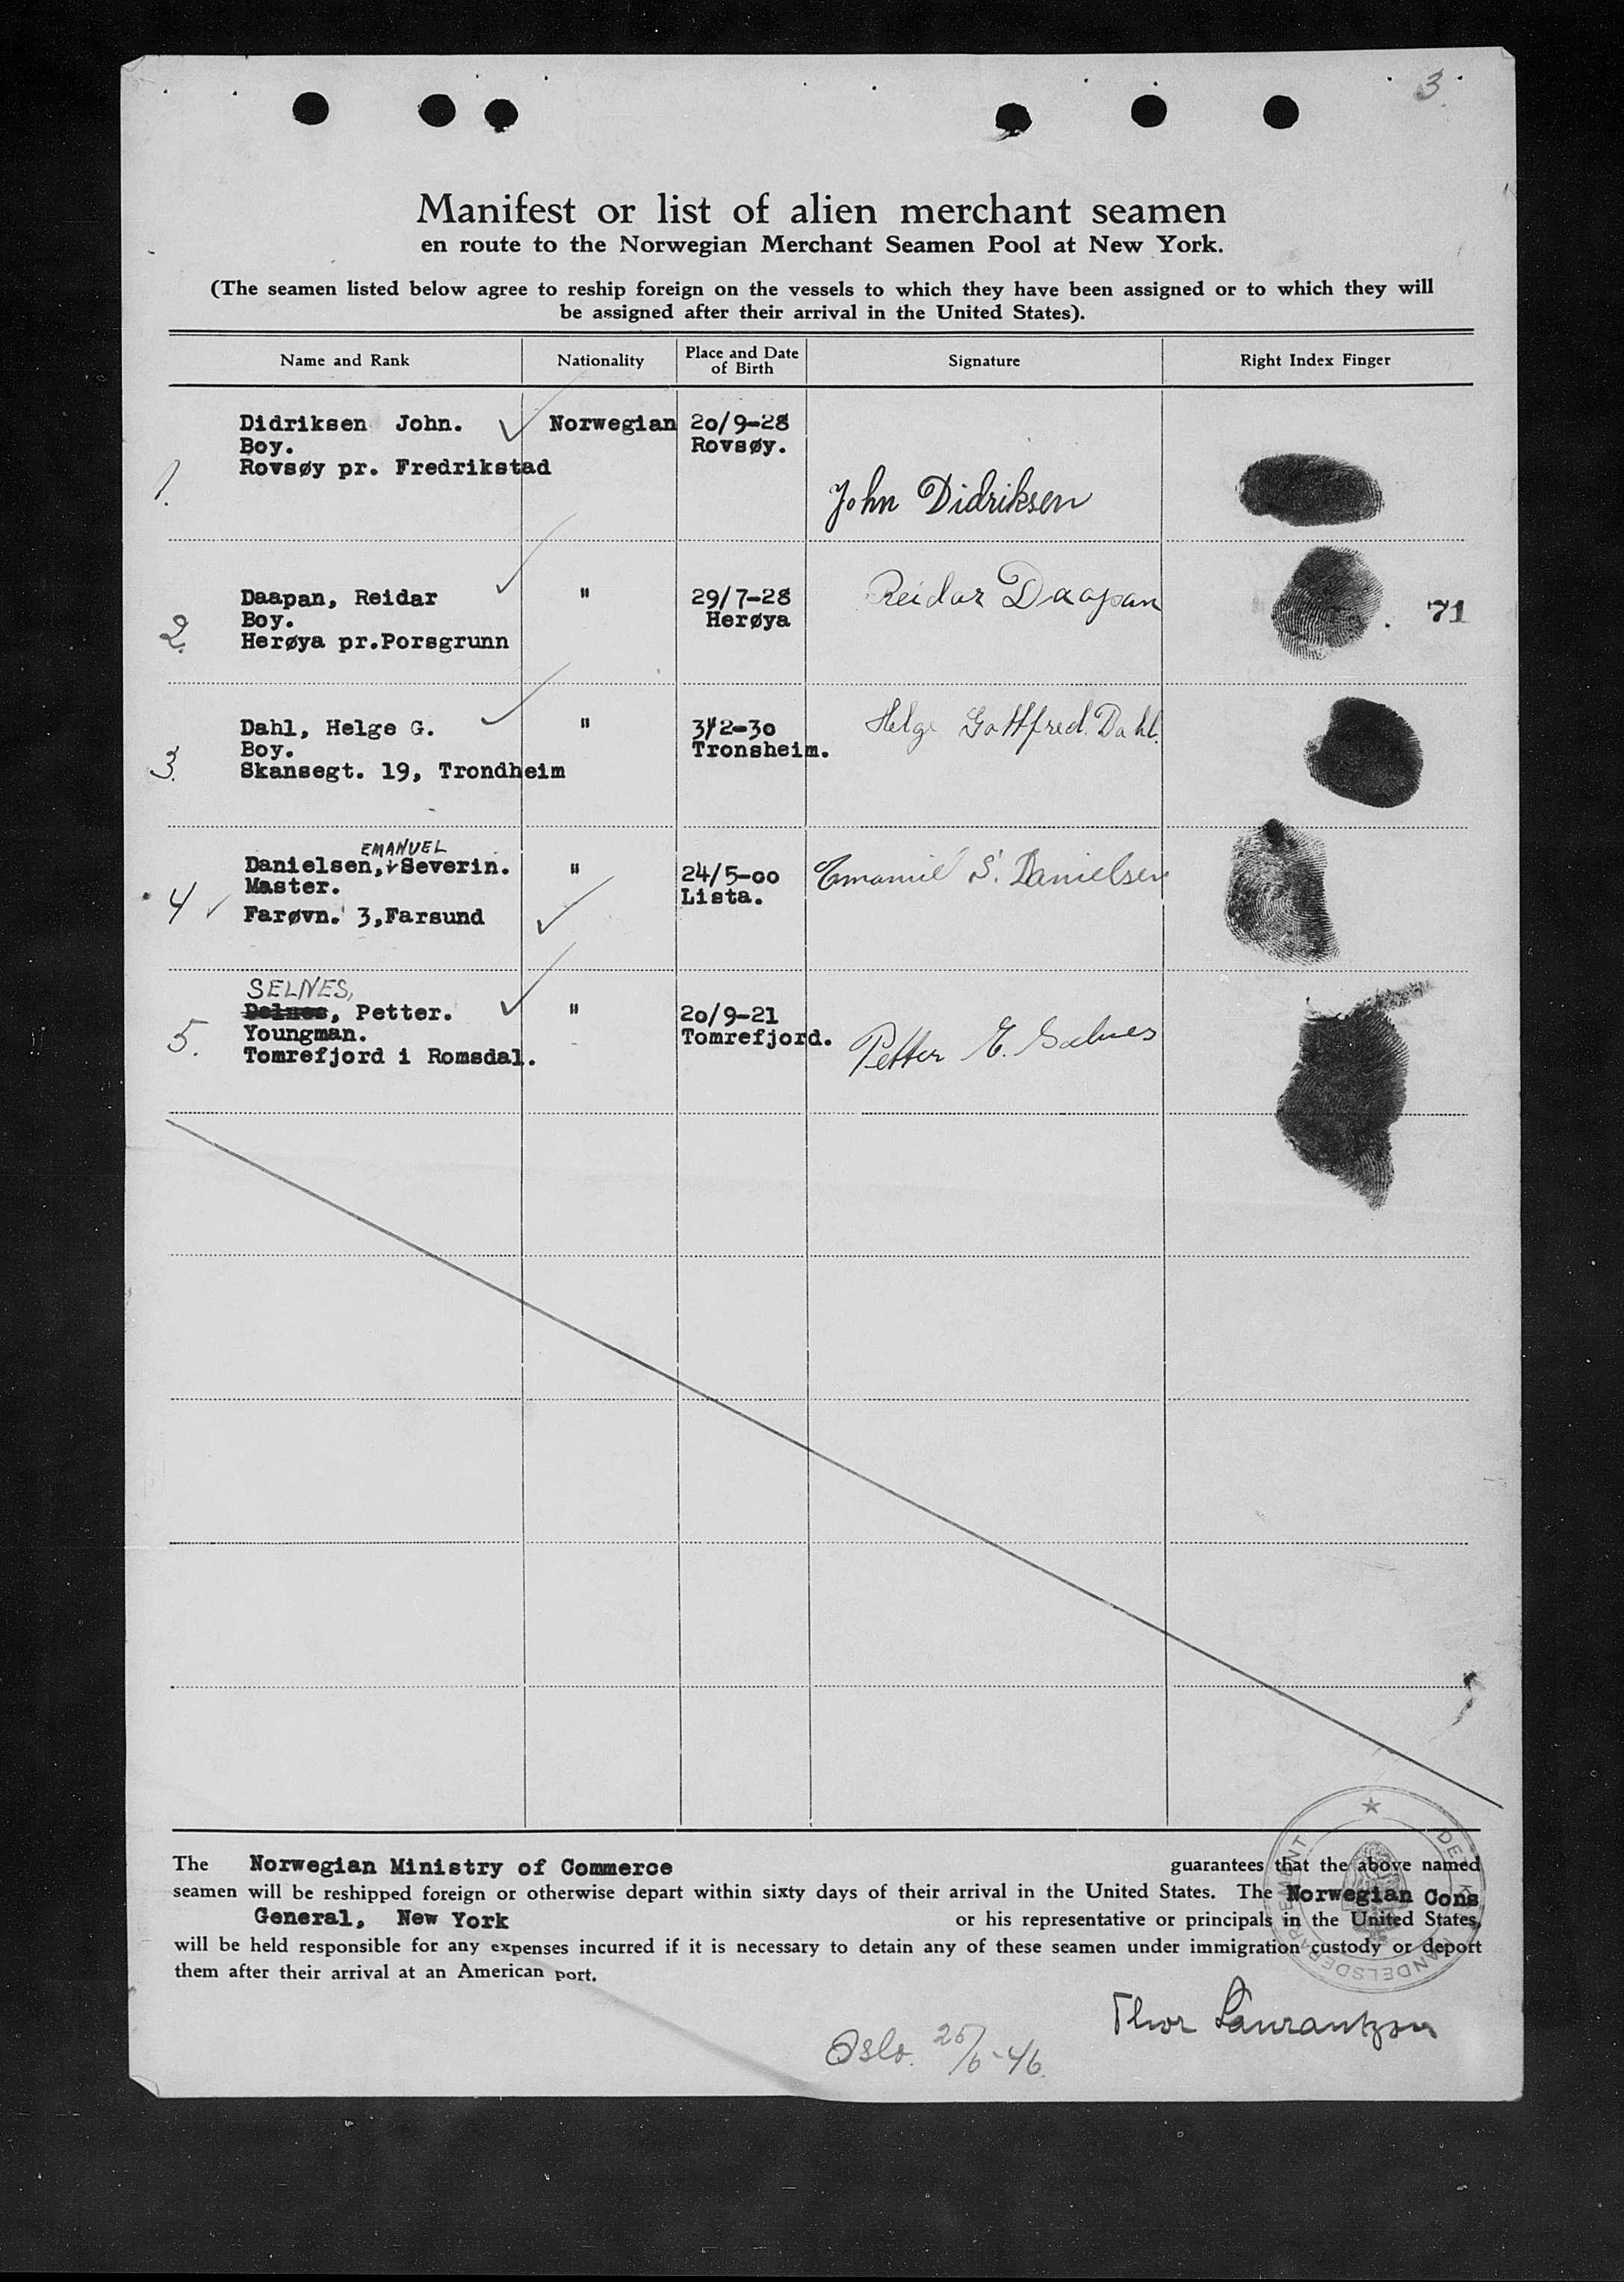 3.
Manifest or list of alien merchant seamen
en route to the Norwegian Merchant Seamen Pool at New York.
(The seamen listed below agree to reship foreign on the vessels to which they have been assigned or to which they will
be assigned after their arrival in the United States).
Name and Rank Nationality Place and Date of Birth Signature Right Index Finger
1. Didriksen John. Norwegian 20/9-28
Boy. Rovsøy.
Rovsøy pr. Fredrikstad
John Didriksen
2. Daapan, Reidar " 29/7-28 Reidar Daapan 71
Boy. Herøya
Herøya pr.Porsgrunn
3. Dahl, Helge G. " Helge Gottfred. Dahl.
Boy. Tronsheim.
Skansegt. 19, Trondheim
EMANUEL
4 Danielsen, Severin. " 24/5-00 S. Danielsen
Master. Lista.
Farøvn. 3,Farsund
SELNES,
5. , Petter. " 20/9-21
Youngman. Tomrefjord. Petter E. Selnes
Tomrefjord i Romsdal.
The Norwegian Ministry of Commerce guarantees that the above named
seamen will be reshipped foreign or otherwise depart within sixty days of their arrival in the United States. The Norwegian Cons
General, New York or his representative or principals in the United States,
will be held responsible for any expenses incurred if it is necessary to detain any of these seamen under immigration custody or deport
them after their arrival at an American port.
HANDELSDEPARTEMENT
Thor
Oslo. 25/6-46.